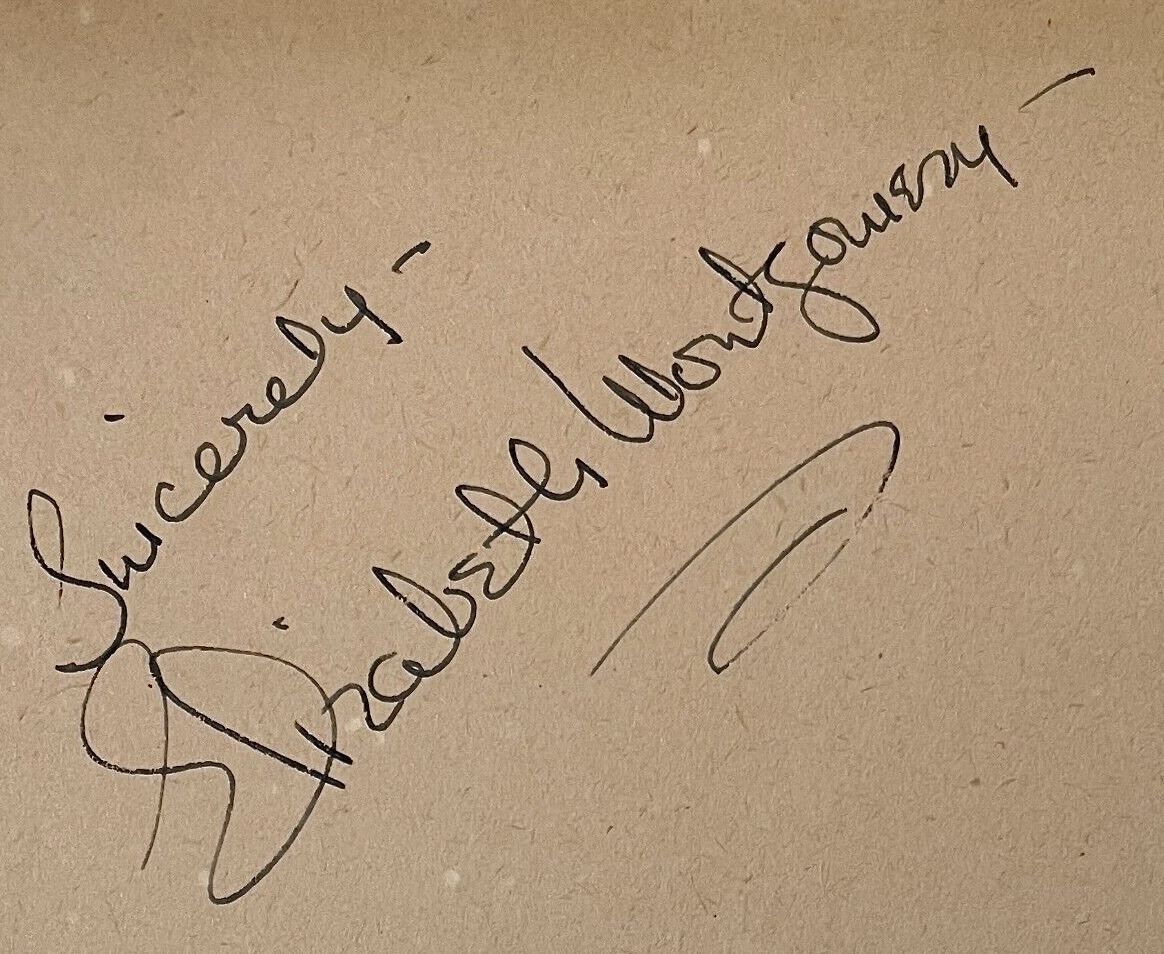 Sincerely -
Elizabeth Montgomery -